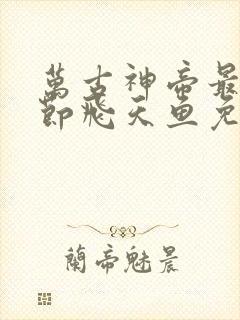 萬古神帝最
節飛天魚免
蘭帝魅晨